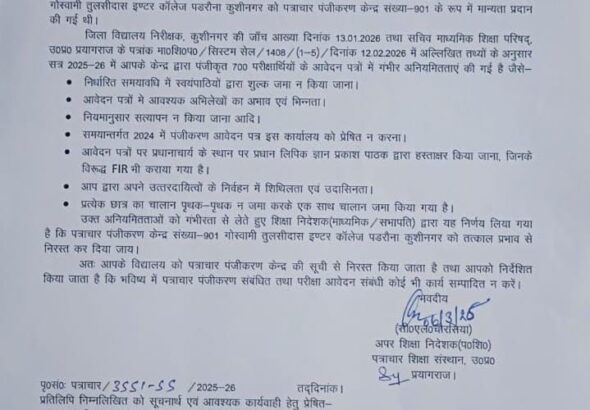 गोस्वामी तुलसीदास इण्टर कॉलेज पडरौना कुशीनगर को पत्राचार पंजीकरण केन्द्र संख्या-901 के रूप में मान्यता प्रदान
की गई थी।
जिला विद्यालय निरीक्षक, कुशीनगर की जाँच आख्या दिनांक 13.01.2026 तथा सचिव माध्यमिक शिक्षा परिषद्,
उ०प्र० प्रयागराज के पत्रांक मा०शि०प० / सिस्टम सेल / 1408 / (1-5) / दिनांक 12.02.2026 में अल्लिखित तथ्यों के अनुसार
सत्र 2025-26 में आपके केन्द्र द्वारा पंजीकृत 700 परीक्षार्थियों के आवेदन पत्रों में गंभीर अनियमितताएं की गई है जैसे–
• निर्धारित समयावधि में स्वयंपाठियों द्वारा शुल्क जमा न किया जाना।
• आवेदन पत्रों में आवश्यक अभिलेखों का अभाव एवं भिन्नता।
• नियमानुसार सत्यापन न किया जाना आदि।
• समयान्तर्गत 2024 में पंजीकरण आवेदन पत्र इस कार्यालय को प्रेषित न करना।
• आवेदन पत्रों पर प्रधानाचार्य के स्थान पर प्रधान लिपिक ज्ञान प्रकाश पाठक द्वारा हस्ताक्षर किया जाना, जिनके
विरूद्ध FIR भी कराया गया है।
• आप द्वारा अपने उत्तरदायित्वों के निर्वहन में शिथिलता एवं उदासिनता।
• प्रत्येक छात्र का चालान पृथक-पृथक न जमा करके एक साथ चालान जमा किया गया है।
उक्त अनियमितताओं को गंभीरता से लेते हुए शिक्षा निदेशक(माध्यमिक / सभापति) द्वारा यह निर्णय लिया गया
है कि पत्राचार पंजीकरण केन्द्र संख्या-901 गोस्वामी तुलसीदास इण्टर कॉलेज पडरौना कुशीनगर को तत्काल प्रभाव से
निरस्त कर दिया जाय।
अतः आपके विद्यालय को पत्राचार पंजीकरण केन्द्र की सूची से निरस्त किया जाता है तथा आपको निर्देशित
किया जाता है कि भविष्य में पत्राचार पंजीकरण संबंधित तथा परीक्षा आवेदन संबंधी कोई भी कार्य सम्पादित न करें।
भवदीय
06/3/26
(सी०एल०चौरसिया)
अपर शिक्षा निदेशक(प०शि०)
पत्राचार शिक्षा संस्थान, उ०प्र०
प्रयागराज।
पृ०सं० पत्राचार / 3551-55 / 2025-26 तद्दिनांक।
प्रतिलिपि निम्नलिखित को सूचनार्थ एवं आवश्यक कार्यवाही हेतु प्रेषित–